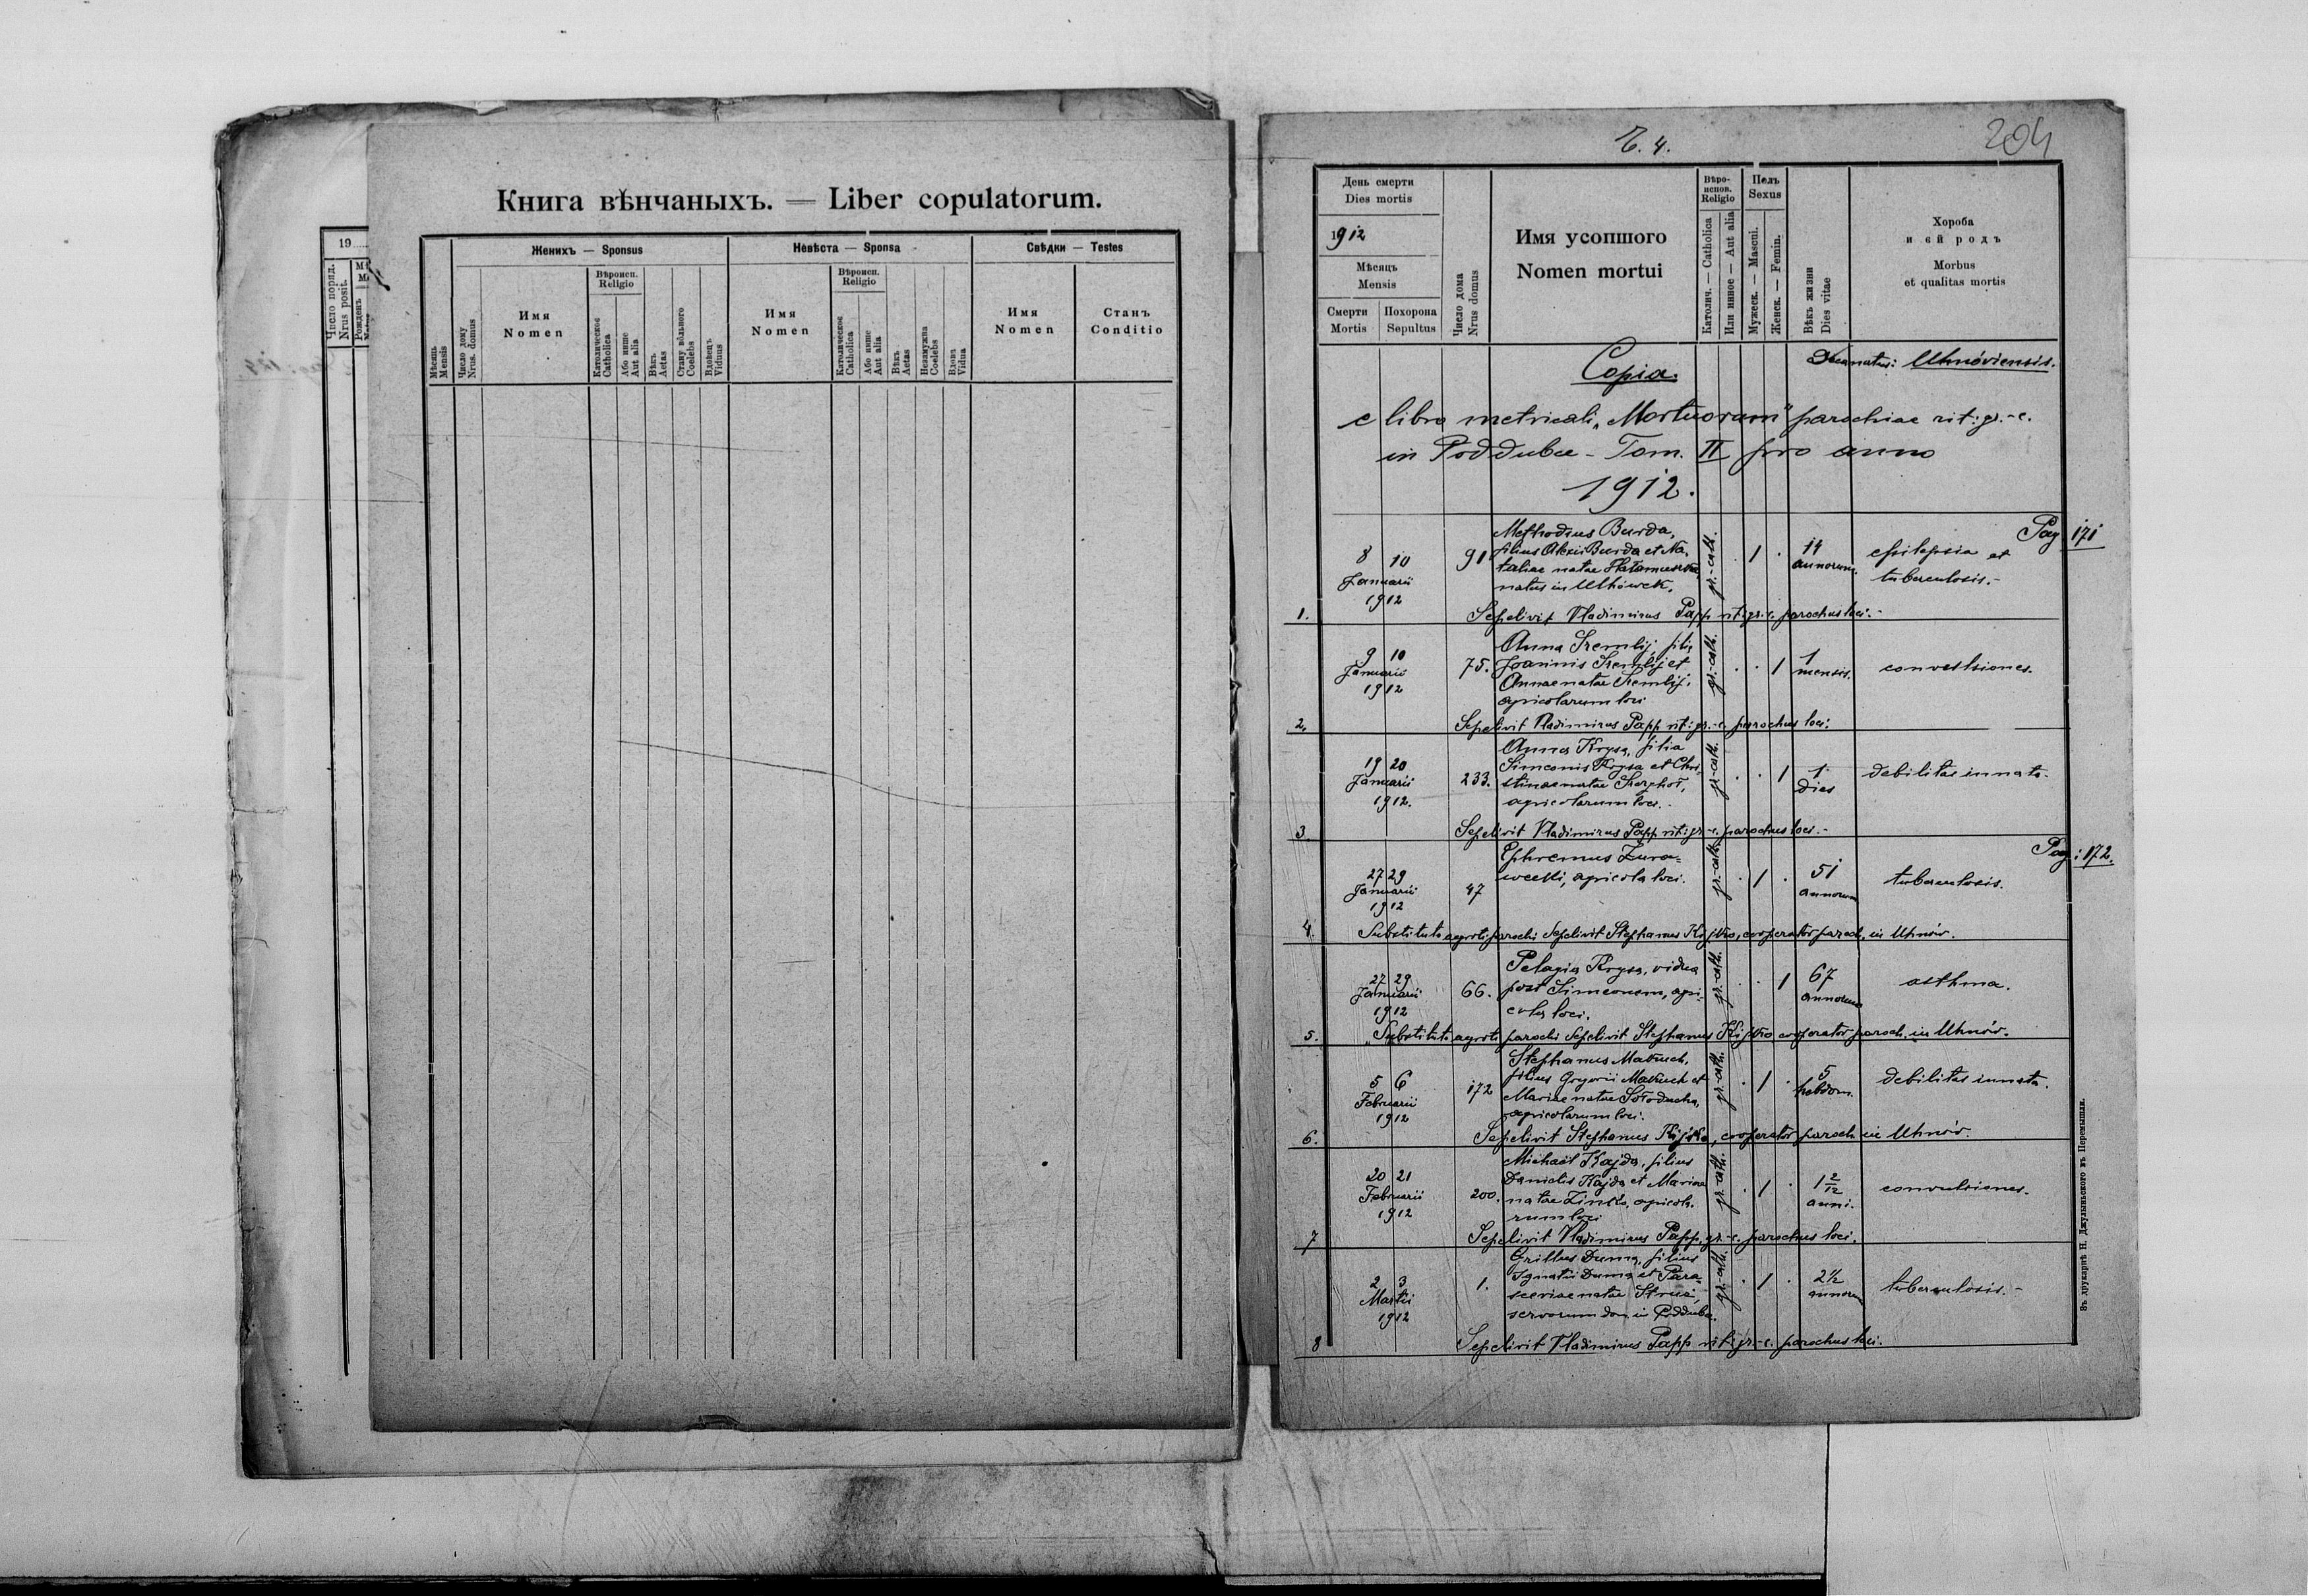 Книга вѣнчаныхъ. — Liber copulatorum.
19
Число поряд.
Nrus posit.
Рожденъ
Мѣсяць
Mensis
Число дому
Nrus. domus
Женихъ — Sponsus
Имя
Nomen
Вѣроисп.
Religio
Католическое
Catholica
Або инше
Aut alia
Вѣкъ
Aetas
Стану вѣльного
Coelebs
Вдовець
Viduus
Невѣста — Sponsa
Имя
Nomen
Вѣроисп.
Religio
Католическое
Catholica
Або инше
Aut alia
Вѣкъ
Aetas
Незамужна
Coelebs
Вдова
Vidua
Свѣдки — Testes
Имя
Nomen
Станъ
Conditio
204
День смерти
Dies mortis
1912
Мѣсяцъ
Mensis
Смерти
Mortis
Похорона
Sepultus
Число дома
Nrus domus
Имя усопшого
Nomen mortui
Вѣро-
испов.
Religio
Католич. — Catholica
Или инное — Aut alia
Полъ
Sexus
Мужеск. — Mascul.
Женск. — Femin.
Вѣкъ жизни
Dies vitae
Хороба
и єй родъ
Morbus
et qualitas mortis
Decanatus: Uhnóviensis.
Copia.
e libro metricali „Mortuorum" parochiae rit: gr.-c.
in Poddubce - Tom. II pro anno
1912.
Pag 171
1.
8 10
Januarii
1912
91
Methodius Burda,
filius Alexii Burda et Na-
taliae natae
natus in Ulhówek.
gr.-cath.
1
14
annorum.
epilepsia et
tuberculosis.-
Sepelivit Vladimirus Papp rit: gr.-c. parochus loci.-
2.
9 10
Januarii
1912
75.
Anna Sremlij, filia
Joannis Sremlij et
Annae natae Sremlij,
agricolarum loci
gr.-cath.
1
1
mensis.
convulsiones.
Sepelivit Vladimirus Papp rit: gr.-c. parochus loci.
3
19 20
Januarii
1912.
233.
Anna Krysa, filia
Simeonis Krysa et Chri-
stinae natae
agricolarum loci.
gr.-cath.
1
1
dies
debilitas innata.
Sepelivit Vladimirus Papp rit: gr.-c. parochus loci.-
Pag: 172.
4.
27 29
Januarii
1912
47
Ephremus Żura-
wecki, agricola loci.
gr.-cath.
1
51
annorum
tuberculosis.
Substitutus aegroti parochi sepelivit Stephanus Kijko, cooperator paroch. in Uhnów.
5.
27 29
Januarii
1912
66.
Pelagia Krysa, vidua
post Simeonem, agri-
cola loci.
gr.-cath.
1
67
annorum
asthma.
Substitutus aegroti parochi sepelivit Stephanus Kijko cooperator paroch. in Uhnów.
6.
5 6
Februarii
1912
172
Stephanus Makuch,
filius Gregorii Makuch et
Mariae natae Sołoducha,
agricolarum loci.
gr.-cath.
1
5
hebdom.
debilitas innata.
Sepelivit Stephanus Kijko, cooperator paroch in Uhnów.
7
20 21
Februarii
1912
200.
Michael Kajda, filius
Danielis Kajda et Mariae
natae Zinko, agricola-
rum loci
gr.-cath.
1
1 2/12
anni.
convulsiones.
Sepelivit Vladimirus Papp, gr.-c. parochus loci.
8
2 3
Martii
1912
1.
Duma, filius
Ignatii Duma et Para-
sceviae natae
servorum dom. in Poddubce.
gr.-cath.
1
2 1/2
annorum
tuberculosis.-
Sepelivit Vladimirus Papp rit: gr.-c. parochus loci.
Зъ друкарнѣ Н. Джулыньского въ Перемышли.